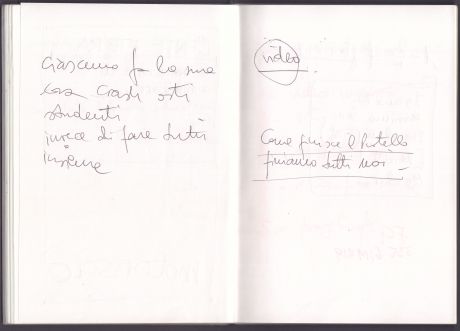 ciascuno fa la sua
cosa
studenti
invece di fare tutti
insieme
video
Come finisce il
finiamo tutti noi